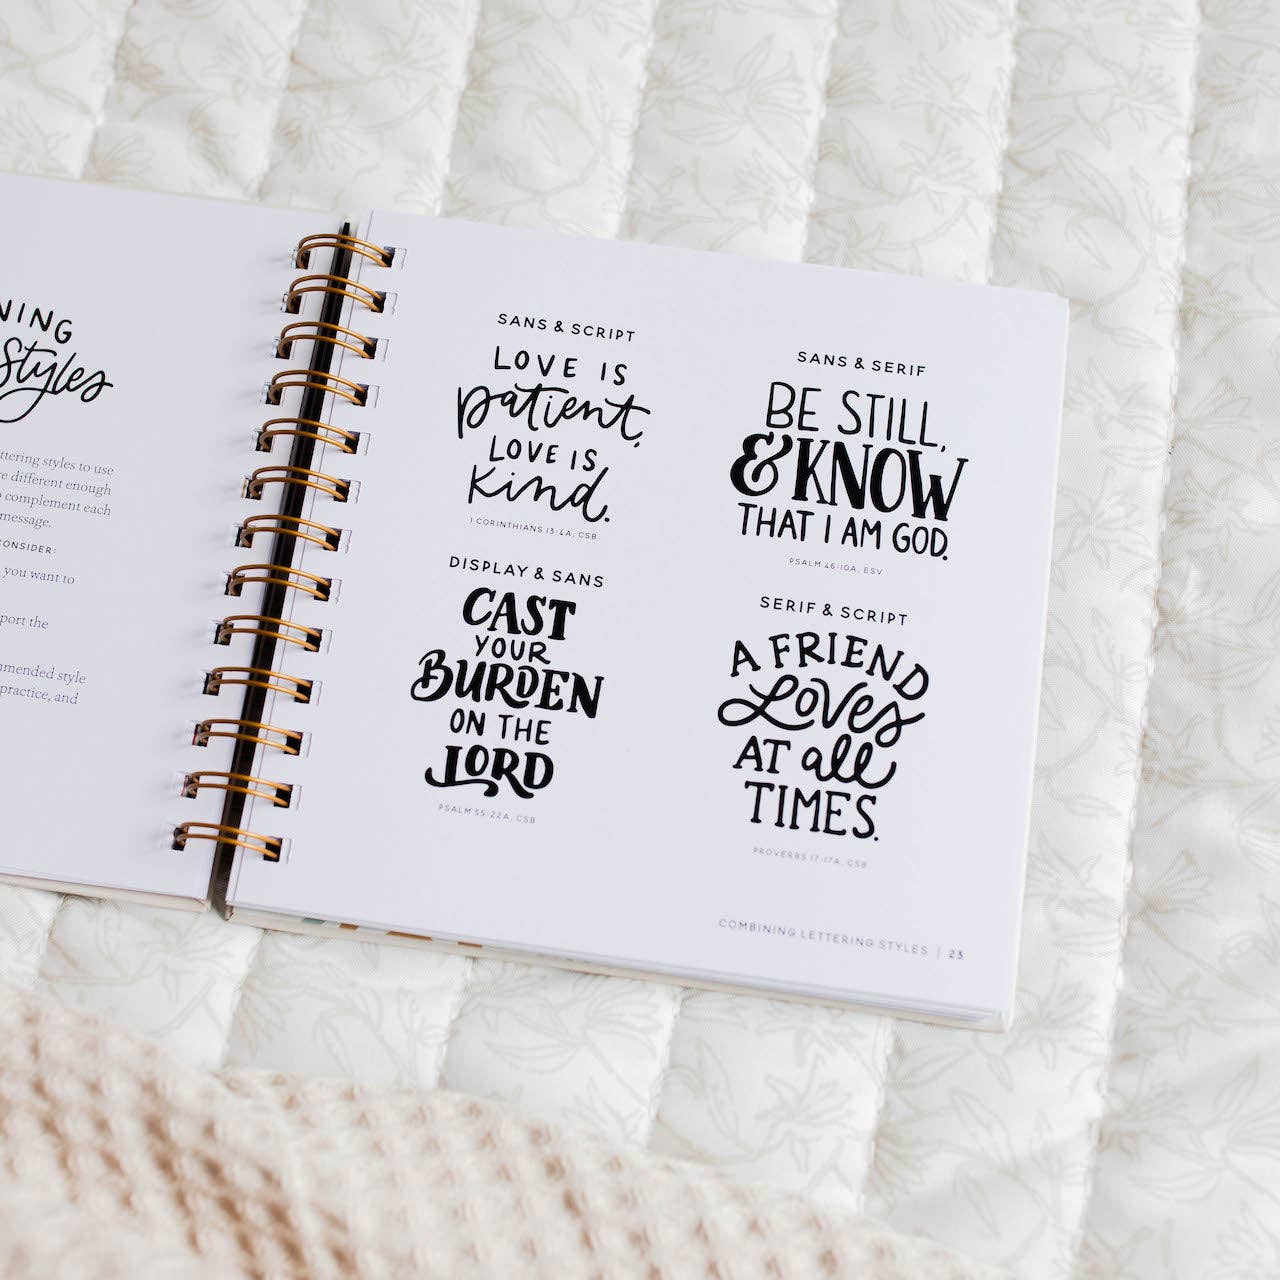 NING
Styles
ttering styles to use
re different enough
complement each
message.
ONSIDER:
you want to
port the
mmended style
practice, and
SANS & SCRIPT
LOVE IS
patient,
LOVE IS
kind.
1 CORINTHIANS 13:4A, CSB
DISPLAY & SANS
CAST
YOUR
BURDEN
ON THE
LORD
PSALM 55:22A, CSB
SANS & SERIF
BE STILL,
& KNOW
THAT I AM GOD.
PSALM 46:10A, ESV
SERIF & SCRIPT
A FRIEND
Loves
AT all
TIMES.
PROVERBS 17:17A, CSB
COMBINING LETTERING STYLES | 23